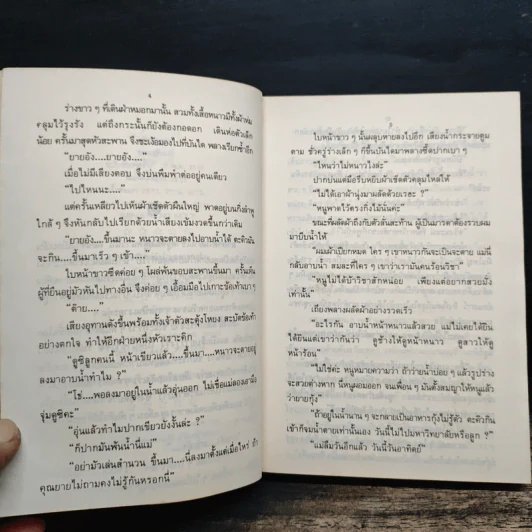 ร่างขาว ๆ ที่เดินฝ่าหมอกมานั้น สวมทั้งเสื้อหนาวมีทั้งผ้าห่ม
คลุมไว้รุงรัง แต่ถึงกระนั้นก็ยังต้องกอดอก เดินห่อตัวเล็ก
น้อย ครั้นมาสุดหัวสะพาน จึงชะเง้อมองไปที่บันได พลางเรียกซ้ำอีก
"ยายอัง....ยายอัง...."
เมื่อไม่มีเสียงตอบ จึงบ่นพึมพำต่ออยู่คนเดียว
"ไปไหนนะ...."
แต่ครั้นเหลียวไปเห็นผ้าเช็ดตัวผืนใหญ่ พาดอยู่บนกิ่งลำพู
ใกล้ ๆ จึงหันกลับไปเรียกด้วยน้ำเสียงเข้มงวดขึ้นกว่าเดิม
"ยายอัง....ขึ้นมานะ หนาวจะตายลงไปอาบน้ำได้ ตะคิวมัน
จะกิน....ขึ้นมาเร็ว ๆ เข้า...."
ใบหน้าขาวซีดค่อย ๆ โผล่พ้นขอบสะพานขึ้นมา ครั้นเห็น
ผู้ที่ยืนอยู่มัวหันไปทางอื่น จึงค่อย ๆ เอื้อมมือไปเกาะข้อเท้าเบา ๆ
"ต๊าย...."
เสียงอุทานดังขึ้นพร้อมทั้งเจ้าตัวสะดุ้งโหยง สะบัดข้อเท้า
อย่างตกใจ ทำให้อีกฝ่ายหนึ่งหัวเราะคิก
"ดูซิลูกคนนี้ หน้าเขียวแล้ว....ขึ้นมา....หนาวจะตายอยู่
ลงมาอาบน้ำทำไม ?"
"โธ่....พอลงมาอยู่ในน้ำแล้วอุ่นออก ไม่เชื่อแม่ลองเอามือ
จุ่มดูซิคะ"
"อุ่นแล้วทำไมปากเขียวยังงั้นล่ะ ?"
"ก็ปากมันพ้นน้ำนี่แม่"
"อย่ามัวเล่นสำนวน ขึ้นมา....นี่ลงมาตั้งแต่เมื่อไหร่ ถ้า
คุณยายไม่ถามคงไม่รู้กันหรอกนี่"
ใบหน้าขาว ๆ นั้นผลุบหายลงไปอีก เสียงน้ำกระจายตูม
ตาม ชั่วครู่ร่างเล็ก ๆ ก็ขึ้นบันไดมาพลางซี้ดปากเบา ๆ
"ไหนว่าไม่หนาวไงล่ะ"
ปากบ่นแต่มือรีบหยิบผ้าเช็ดตัวคลุมไหล่ให้
"ไม่ได้เอาผ้านุ่งมาผลัดด้วยเรอะ ?"
"หนูพาดไว้ตรงกิ่งโน้นค่ะ"
ขณะที่ผลัดผ้าถึงกับตัวสั่นสะท้าน ผู้เป็นมารดาต้องรวบผม
มาบีบน้ำให้
"ผมเผ้าเปียกหมด ใคร ๆ เขาหนาวกันจะเป็นจะตาย แม่นี่
กลับอาบน้ำ สมละที่ใคร ๆ เขาว่าเรามันคนร้อนวิชา"
"หนูไม่ได้บ้าวิชาสักหน่อย เพียงแต่อยากสวยมั่ง
เท่านั้น"
เถียงพลางผลัดผ้าอย่างรวดเร็ว
"อะไรกัน อาบน้ำหน้าหนาวแล้วสวย แม่ไม่เคยได้ยิน
ได้ยินแต่เขาว่ากันว่า ดูช้างให้ดูหน้าหนาว ดูสาวให้ดู
หน้าร้อน"
"ไม่ใช่ค่ะ หนูหมายความว่า ถ้าว่ายน้ำบ่อย ๆ แล้วรูปร่าง
จะสวยต่างหาก นี่หนูผอมออก จนเพื่อน ๆ มันตั้งสมญาให้หนูแล้ว
ว่ายายกุ้ง"
"ถ้าอยู่ในน้ำนาน ๆ จะกลายเป็นอาหารกุ้งไม่รู้ตัว ตะคิวกิน
เข้าก็จมน้ำตายเท่านั้นเอง วันนี้ไม่ไปมหาวิทยาลัยหรือลูก ?"
"แม่ลืมวันอีกแล้ว วันนี้วันอาทิตย์"